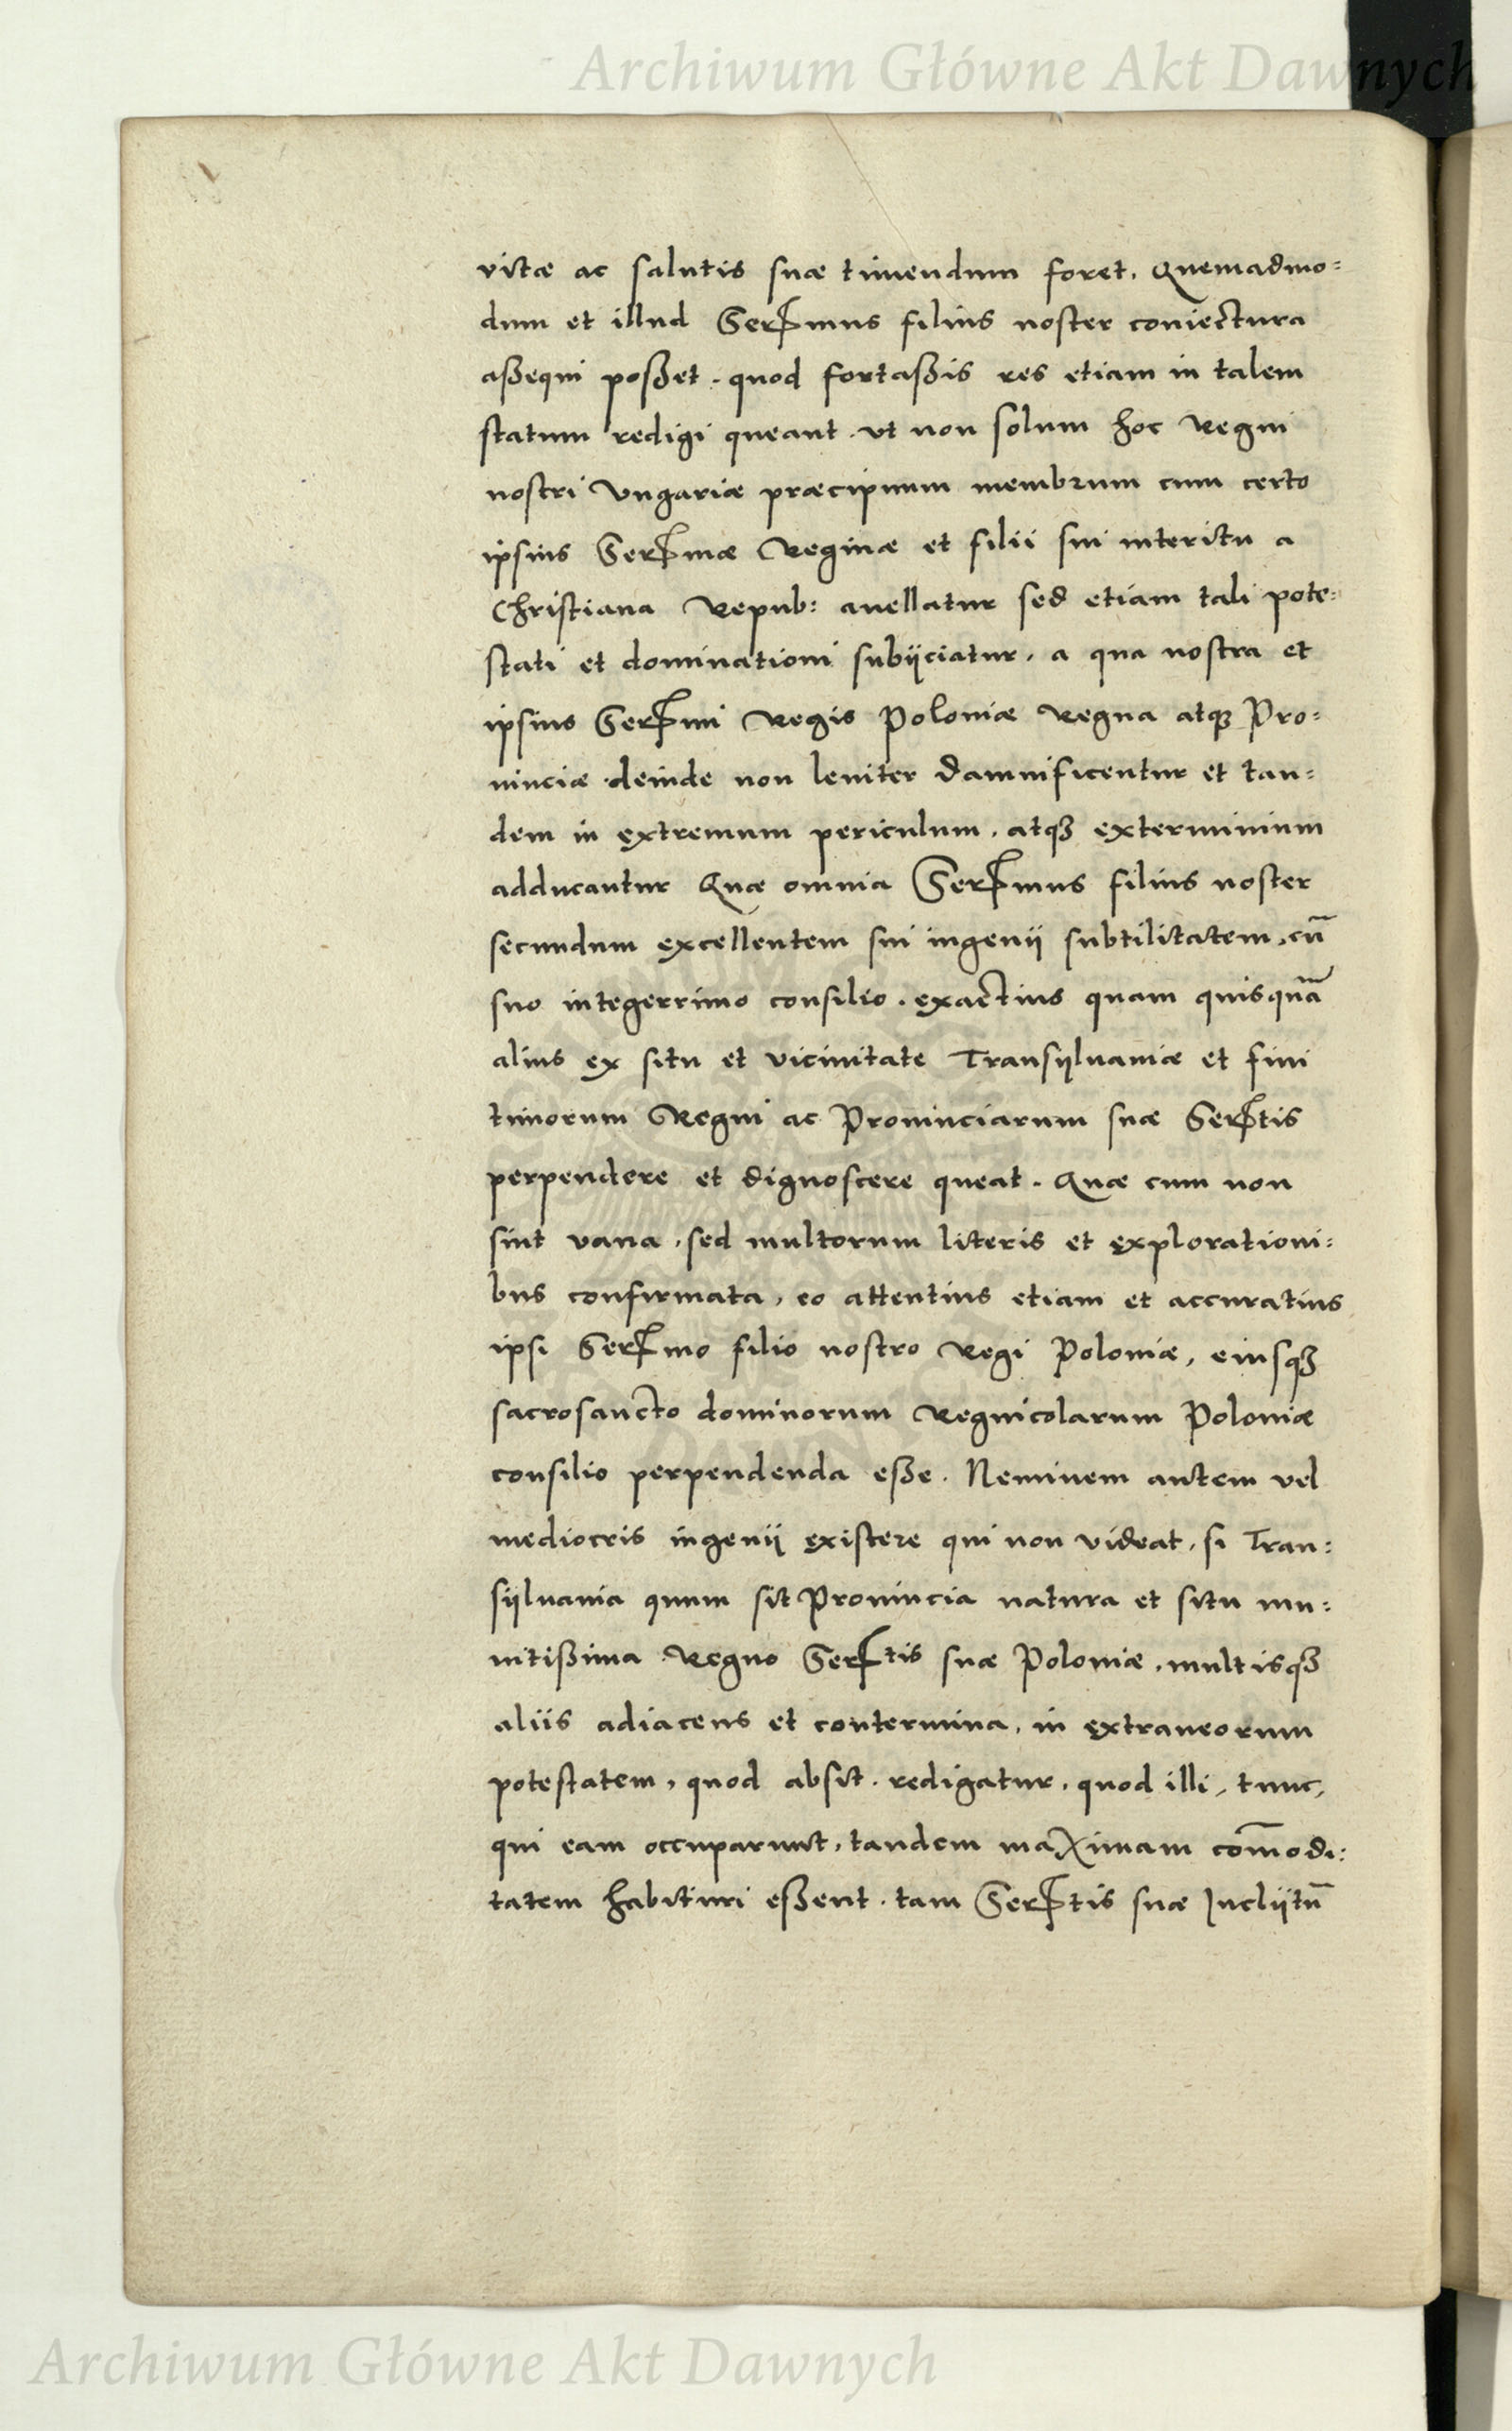 Archiwum Główne Akt Dawnych
vitæ ac salutis suæ timendum foret. Quemadmo=
dum et illud Serᵐᵘˢ filius noster coniectura
aßequi poßet. quod fortaßis res etiam in talem
statum redigi queant. ut non solum hoc Regni
nostri Vngariæ præcipuum membrum cum certo
ipsius Serᵐæ Reginæ et filii sui interitu a
Christiana Repub: auellatur sed etiam tali pote=
stati et dominationi subijciatur, a qua nostra et
ipsius Serᵐⁱ Regis Poloniæ Regna atqꝫ Pro=
uinciæ deinde non leuiter damnificentur et tan=
dem in extremum periculum, atqꝫ exterminium
adducantur Quæ omnia Serᵐᵘˢ filius noster
secundum excellentem sui ingenij subtilitatem, cū
suo integerrimo consilio. exactius quam quisquā
alius ex situ et vicinitate Transijluaniæ et fini
timorum Regni ac Prouinciarum suæ Serᵗⁱˢ
perpendere et dignoscere queat. Quæ cum non
sint vana, sed multorum literis et explorationi=
bus confirmata, eo attentius etiam et accuratius
ipsi Serᵐᵒ filio nostro Regi Poloniæ, eiusqꝫ
sacrosancto dominorum Regnicolarum Poloniæ
consilio perpendenda eße. Neminem autem vel
mediocris ingenij existere qui non videat, si Tran=
sijluania quum sit Prouincia natura et situ mu=
nitißima Regno Serᵗⁱˢ suæ Poloniæ, multisqꝫ
aliis adiacens et contermina, in extraneorum
potestatem, quod absit. redigatur, quod illi, tunc,
qui eam occuparunt, tandem maximam com̄odi=
tatem habituri eßent. tam Serᵗⁱˢ suæ Inclijtū
Archiwum Główne Akt Dawnych